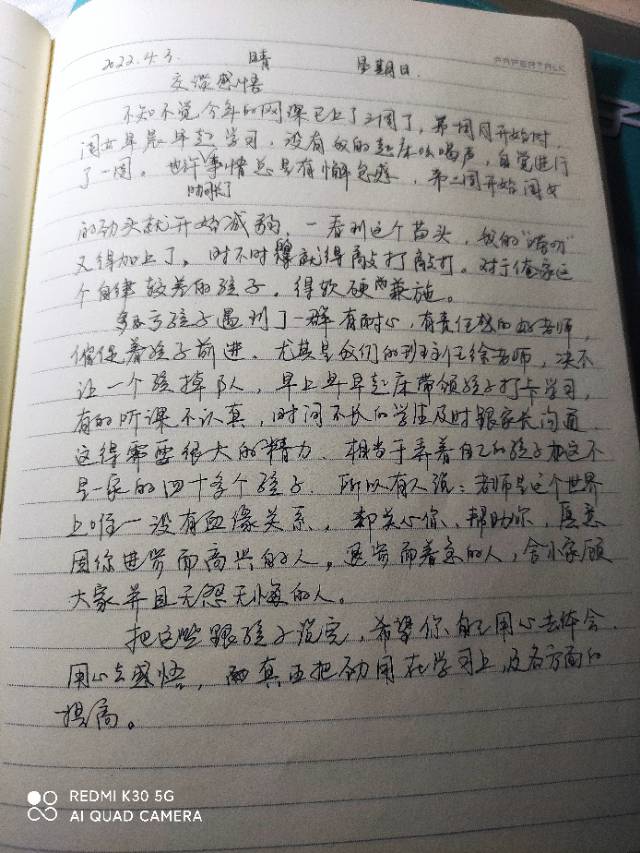 2022.4.3. 晴 星期日.
PAPERTALK
交谈感悟
不知不觉今年的网课已上了三周了，第一周刚开始时，
闺女早晨早起学习，没有我的起床吆喝声，自觉进行
了一周。也许事情总是有懈怠，第二周开始闺女
的劲头就开始减弱，一看到这个苗头，我的
又得加上了。时不时就得敲打敲打。对于俺家这
个自律较差的孩子，得软硬兼施。
多亏孩子遇到了一群有耐心，有责任感的好老师，
催促着孩子前进。尤其是我们的班主任徐老师，决不
让一个孩掉队，早上早早起床带领孩子打卡学习，
有的听课不认真，时间不长的学生及时跟家长沟通
这得需要很大的精力。相当于养着自己的孩子和这不
是一家的四十多个孩子。所以有人说：老师是这个世界
上唯一没有血缘关系，却关心你、帮助你，愿意
因你进步而高兴的人。退步而着急的人，舍小家顾
大家并且无怨无悔的人。
把这些跟孩子说完，希望你自己用心去体会.
用心去感悟，真正把劲用在学习上，及各方面的
提高。
REDMI K30 5G
AI QUAD CAMERA